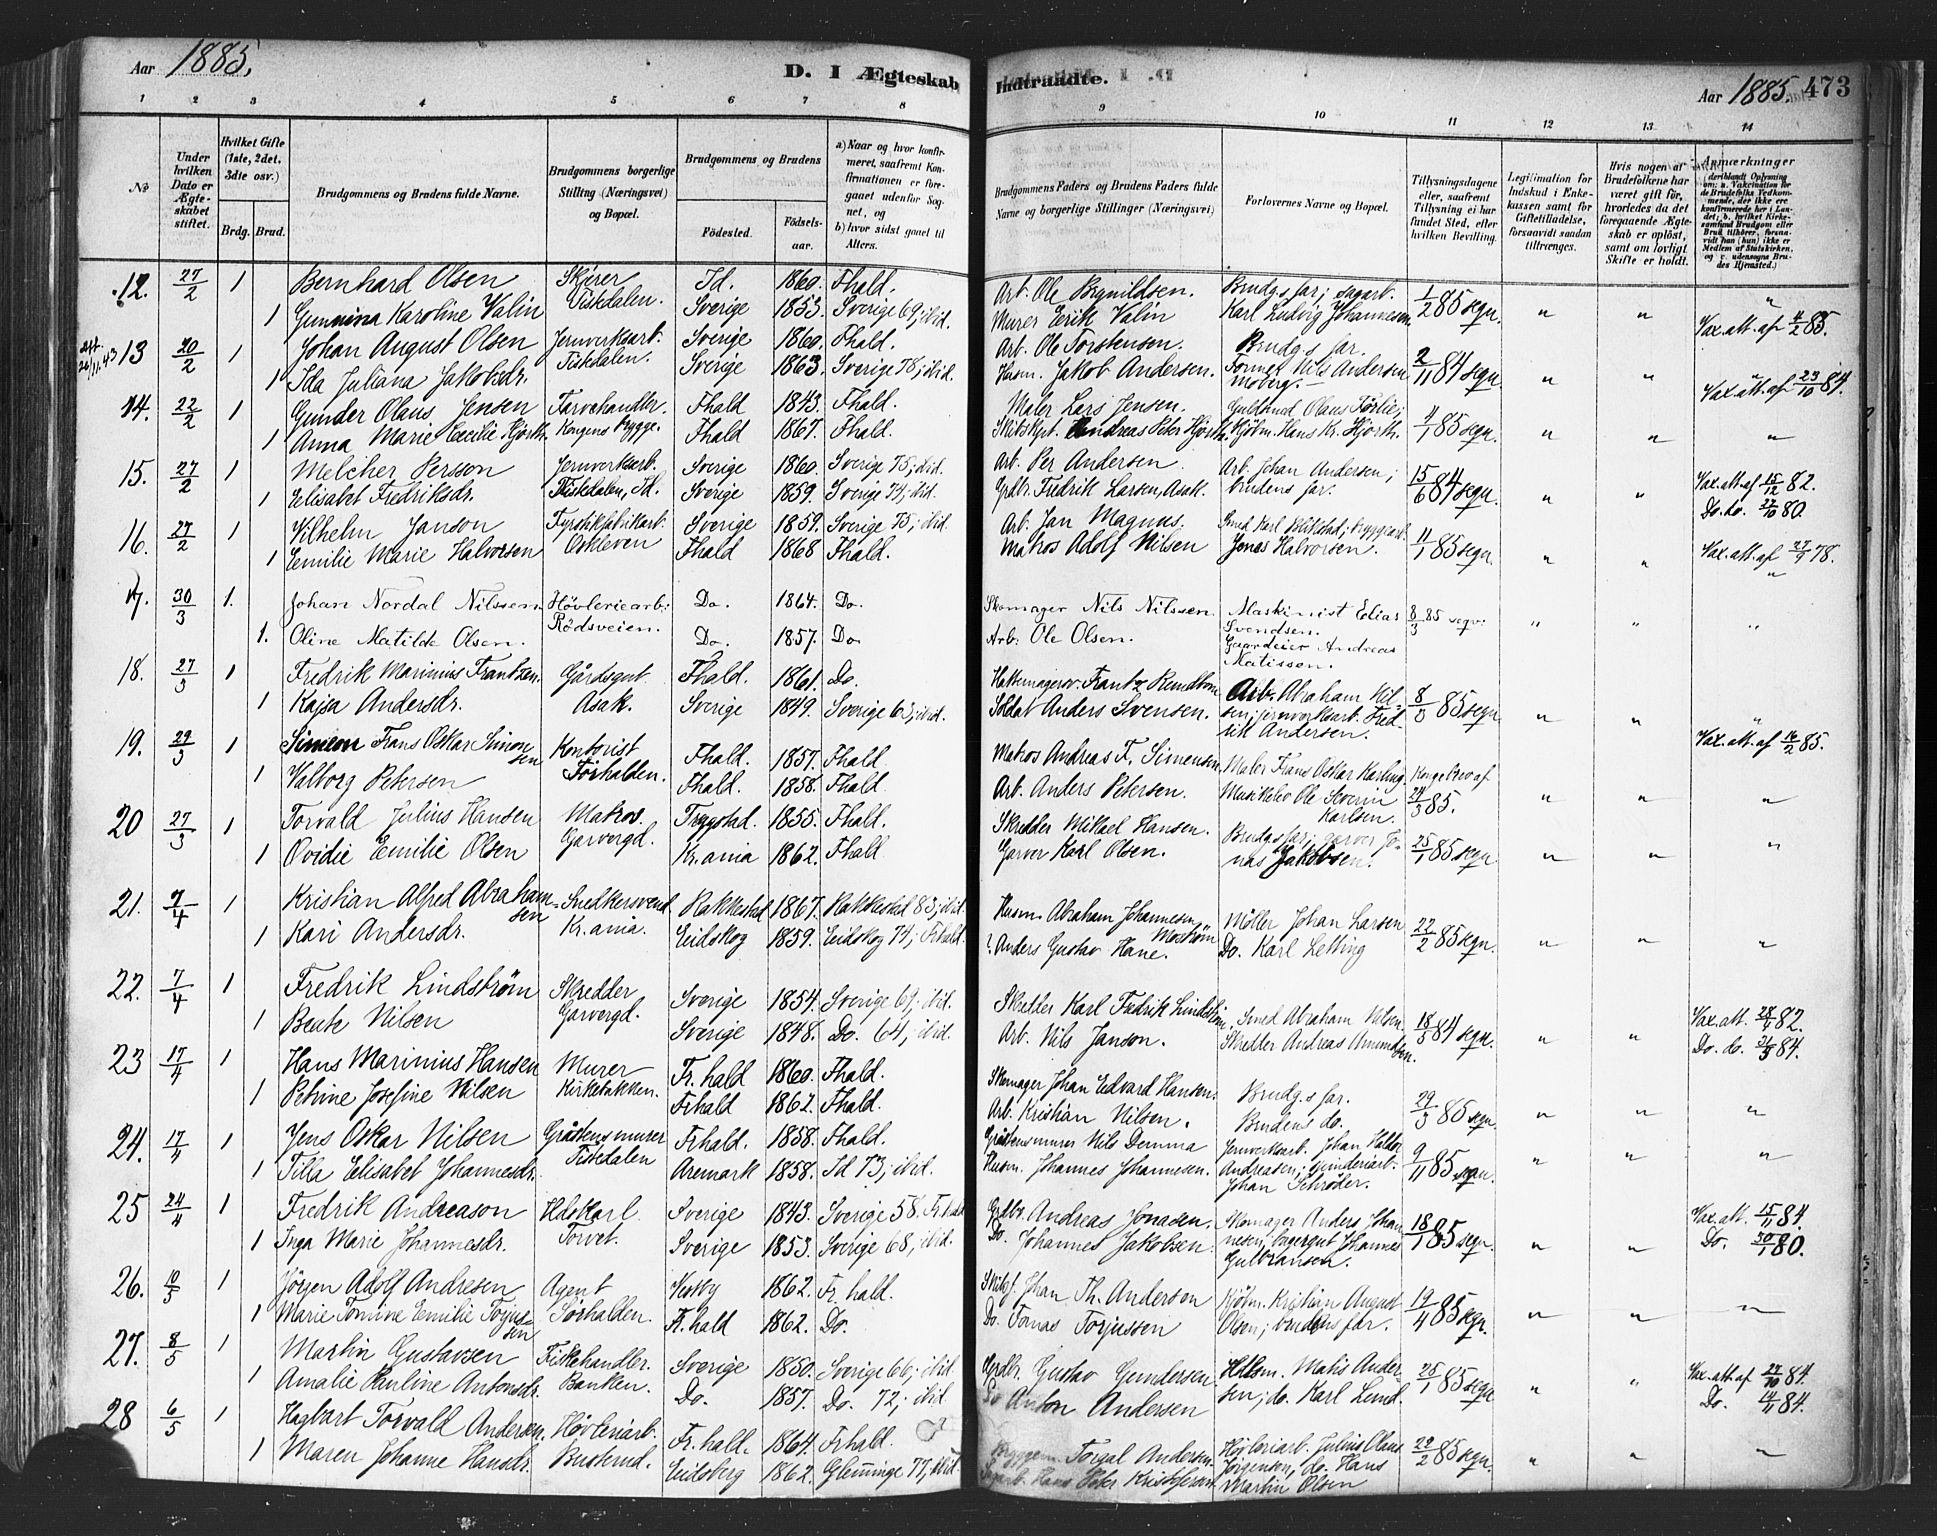 Aar 1885.
D. I Ægteskab
Indtraadte.
Aar 1885. 473
1 2 3 4 5 6 7 8
9 10 11 12 13 14
No
Under hvilken Dato er Ægteskabet stiftet.
Hvilket Gifte (1ste, 2det, 3die osv.)
Brdg. Brud.
Brudgommens og Brudens fulde Navne.
Brudgommens borgerlige Stilling (Næringsvei) og Bopæl.
Brudgommens og Brudens
Fødested.
Fødselsaar.
a) Naar og hvor konfirmeret, saafremt Konfirmationen er foregaaet udenfor Sognet, og
b) hvor sidst gaaet til Alters.
Brudgommens Faders og Brudens Faders fulde Navne og borgerlige Stillinger (Næringsvei)
Forlovernes Navne og Bopæl.
Tillysningsdagene eller, saafremt Tillysning ei har fundet Sted, efter hvilken Bevilling.
Legitimation for Indskud i Enkekassen samt for Giftetilladelse, forsaavidt saadan tiltrænges.
Hvis nogen af Brudefolkene har været gift før, hvorledes da det foregaaende Ægteskab er opløst, samt om lovligt Skifte er holdt.
Anmærkninger
12. 27/2 1 Bernhard Olsen Skjærer Id. 1860. Fhald. Arb. Ole Brynildsen. Brudgs far; sagarb. 1/2 85 seqn. " " "
1 Gunnina Karoline Valin Tistedalen. Sverige 1853. Sverige 69; ibid. Murer Eerik Valin Karl Ludvig Johannesen. Vax. att. af 4/2 85.
13 20/2 1 Johan August Olsen Jernverksarb. Sverige 1860. Fhald. Arb. Ole Torstensen. Brudgs far. 2/11 84 seqn. " " "
1 Ida Juliana Jakobsdr. Tistedalen. Sverige 1863. Sverige 78; ibid. Husm. Jakob Andersen. Former Nils Andersen Moberg. Vax. att. af 23/10 84.
14. 22/2 1 Gunder Olaus Jensen Farvehandler. Fhald 1843. Fhald. Maler Lars Jensen. Guldsmd Olaus Førlie; 4/1 85 seqn. " " "
1 Anna Marie Cecilie Hjorth. Kongens brygge. Fhald 1867. Fhald. Skibskpt. Andreas Peter Hjorth. Kjøbm. Hans Kr. Hjorth.
15. 27/2 1 Melcher Persson Jernverksarb. Sverige 1860. Sverige 75; ibid. Arb. Per Andersen. Arb. Johan Andersen; 15/6 84 seqn. " " Vax. att. af 15/12 82.
1 Elisabet Fredriksdr. Tistedalen, Id. Sverige 1859. Sverige 74; ibid. Grdbr. Fredrik Larsen, Asak. brudens far. Do. do. 27/10 80.
16. 27/2 1 Vilhelm Janson Fyrstikfabrikarb. Sverige 1859. Sverige 75; ibid. Arb. Jan Magnus. Smed Karl Mitstad; bryggearb. 11/1 85 seqn. " " Vax. att. af 27/9 78.
1 Emilie Marie Halvorsen Oskleven Fhald 1868 Fhald. Matros Adolf Nilsen Jonas Halvorsen. "
17. 30/3 1. Johan Nordal Nilssen. Høvleriearb: Do. 1864. Do. Skomager Nils Nilssen. Maskinist Elias Svendsen. 8/3 85 seqv: " " "
1. Oline Matilde Olsen. Rödsveien. Do. 1857. Do Arb: Ole Olsen. Gaardeier Andreas Matissen.
18. 27/3 1 Fredrik Marinius Frantzen. Gårdsgut Fhald. 1861. Do. Hattemagersv. Frantz Rundbom Arb. Abraham Nilsen; jernverksarb. Fredrik Andersen. 8/3 85 seqn. " " "
1 Kajsa Andersdr. Asak. Sverige 1849. Sverige 63; ibid. Soldat Anders Svensen. Vax. att. af 16/2 85.
19. 29/3 1 Simeon Frans Oskar Simonsen Kontorist Fhald. 1857. Fhald. Matros Andreas F. Simensen Maler Frans Oskar Karling Kongebrev af 24/3 85. " " "
1 Valborg Petersen Sørhalden. Fhald. 1858. Fhald. Arb. Anders Petersen. Musikelev Ole Severin Karlsen.
20 27/3 1 Torvald Julius Hansen Matros. Trygstad. 1855. Fhald. Skredder Mikael Hansen. Brudgs far; garver Jonas Jakobsen. 25/1 85 seqn " " "
1 Ovidie Emilie Olsen Garvergd. Kr.ania 1862. Fhald Garver Karl Olsen.
21. 7/4 1 Kristian Alfred Abrahamsen Snedkersvend Rakkestad 1867. Rakkestad 83; ibid. Husm. Abraham Johannesen Mostrøm Møller Johan Larsen 22/2 85 seqn. " " "
1 Kari Andersdr. Kr.ania. Eidskog 1859. Eidskog 74; Frhald. Anders Gustav Hane. Do. Karl Letting
22. 7/4 1 Fredrik Lindstrøm Skredder Sverige 1854. Sverige 69; ibid. Skredder Karl Fredrik Lindstrøm. Smed Abraham Nilsen. 18/5 84 seqn. " " Vax. att. 28/4 82.
1 Beate Nilsen Garvergd. Sverige 1848. Do. 64, ibid. Arb. Nils Janson. Skredder Andreas Amundsen. Do. do. 21/5 84.
23 17/4 1 Hans Marinius Hansen Murer Fr.hald 1860. Fhald. Skomager Johan Edvard Hansen. Brudgs far. 29/3 85 seqn. " " "
1 Petrine Josefine Nilsen Kirkebakken. Frhald 1862. Fhald. Arb. Kristian Nilsen. Brudens do.
24. 17/4 1 Jens Oskar Nilsen Gråstensmurer Frhald. 1858. Fhald. Gråstensmurer Nils Demma Jernverksarb. Johan Halvor Andreasen; spinderiarb. Johan Schrøder. 9/11 85 seqn. " " "
1 Tilla Elisabet Johannesdr. Tistedalen Aremark 1858. Id 73; ibid. Husm. Johannes Johannesen.
25 24/4 1 Fredrik Andreason Ildekarl Sverige 1843. Sverige 58. Fr.hald Grdbr. Andreas Jonasen. Skomager Anders Johannesen, bagergut Johannes Gulbransen. 18/1 85 seqn. " " Vax. att. 15/11 84.
1 Inga Marie Johannesdr. Torvet. Sverige 1853. Sverige 68, ibid. Do. Johannes Jakobsen. Do. 30/1 80.
26. 10/5 1 Jörgen Adolf Andresen Agent Vestby 1862. Fr. hald. Skibsf. Johan Th. Andersen Kjöbm. Kristian August Olsen; brudens far. 19/4 85 seqn. " " "
1 Marie Tomine Emilie Torjussen Sørhalden. Fr.hald 1862. Do. Do. Tomas Torjussen
27. 8/5 1 Martin Gustavsen Fiskehandler. Sverige 1850. Sverige 66; ibid. Grdbr. Gustav Gundersen Hdlsm. Matis Andersen; do. Karl Lund. 25/1 85 seqn " " Vax. att. af 27/10 84.
1 Amalie Pauline Antonsdr. Banken. Do. 1857. Do. 72; ibid. Do Anton Andersen Do. 14/11 84.
28 6/5 1 Hagbart Torvald Andersen Høvleriarb. Fr.hald. 1864. Frhald. Bryggem. Torgal Andersen. Høvleriarb. Julius Olaus Jørgensen, do. Hans Martin Olsen 22/2 85 seqn. " " "
1 Maren Johanne Hansdr. Busterud. Eidsberg 1862. Glemminge 77; ibid. Hans Peter Kristofersen